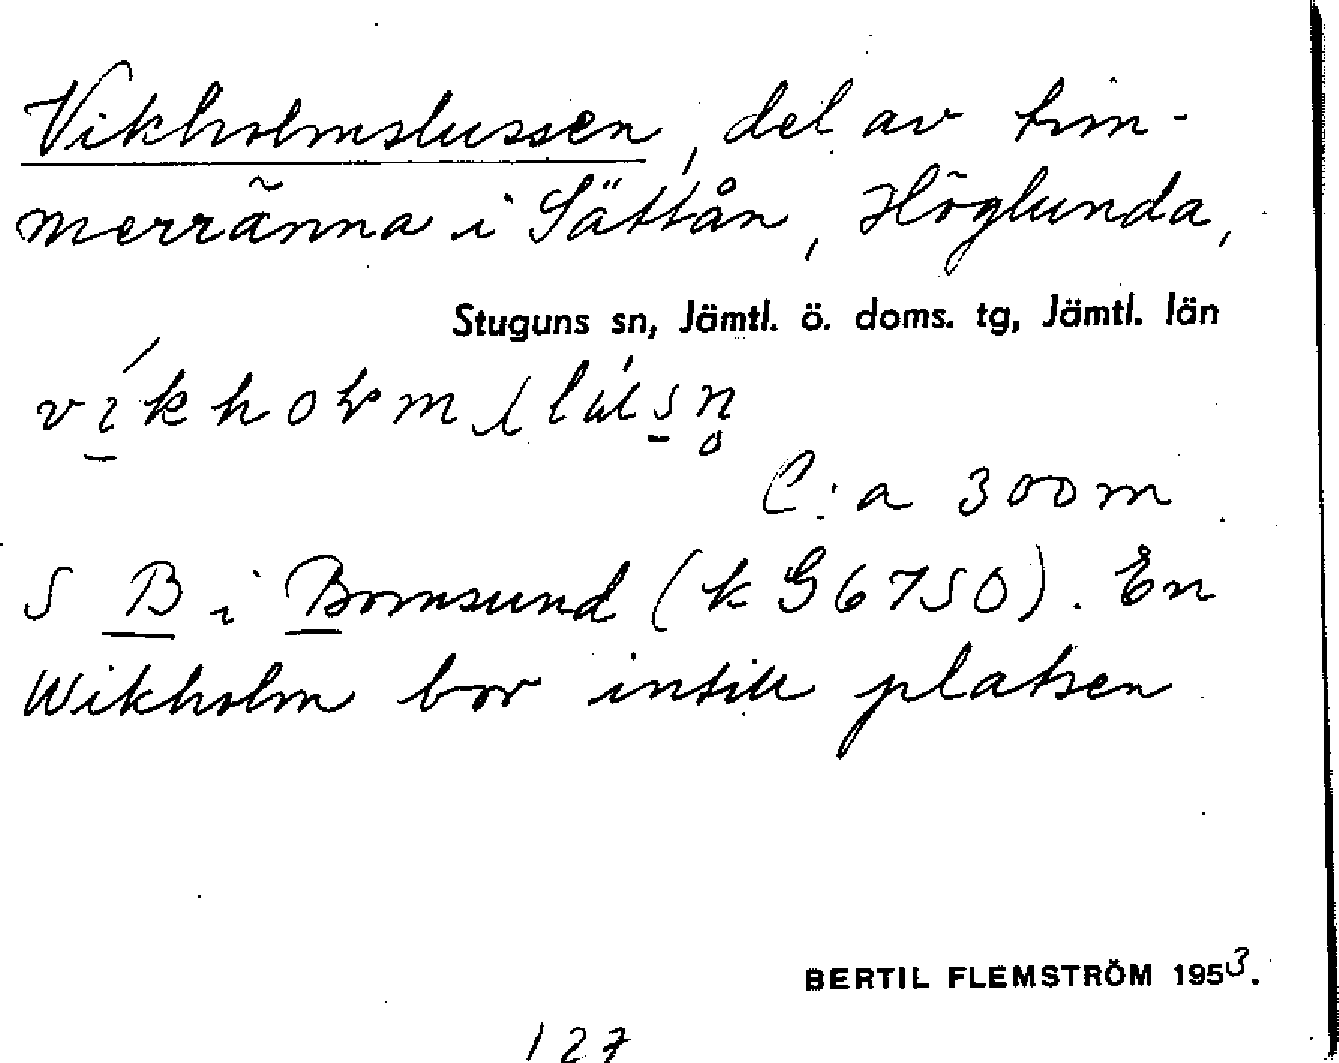 Vikholmslussen, del av tim-
merränna i Sättån, Höglunda,
Stuguns sn, Jämtl. ö. doms. tg, Jämtl. län
C:a 300m
S B i Bomsund (k G6750). En
Wikholm bor intill platsen
BERTIL FLEMSTRÖM 1953.
127